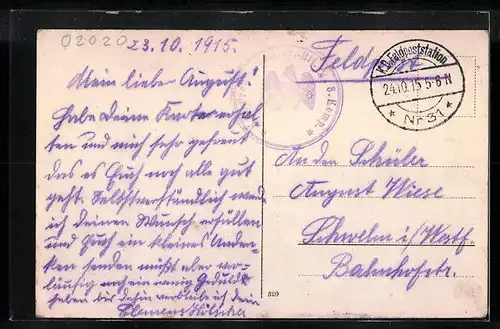 02020
23.10.1915.
Mein lieber August!
Habe Deine Karte erhal-
ten und mich sehr gefreut
das es Euch noch alle gut
geht. Selbstverständlich werde
ich deinen Wunsch erfüllen
und Euch ein kleines Anden-
ken senden müßt aber vor-
läufig noch ein wenig Geduld
haben bis dahin verbleibe ich dein
Klemens
Feldpost
8. Komp.
K.D. Feldpoststation
24.10.15 5-6 N
* Nr 31 *
An den Schüler
August Wiese
Schwelm i/Westf.
Bahnhofstr.
320